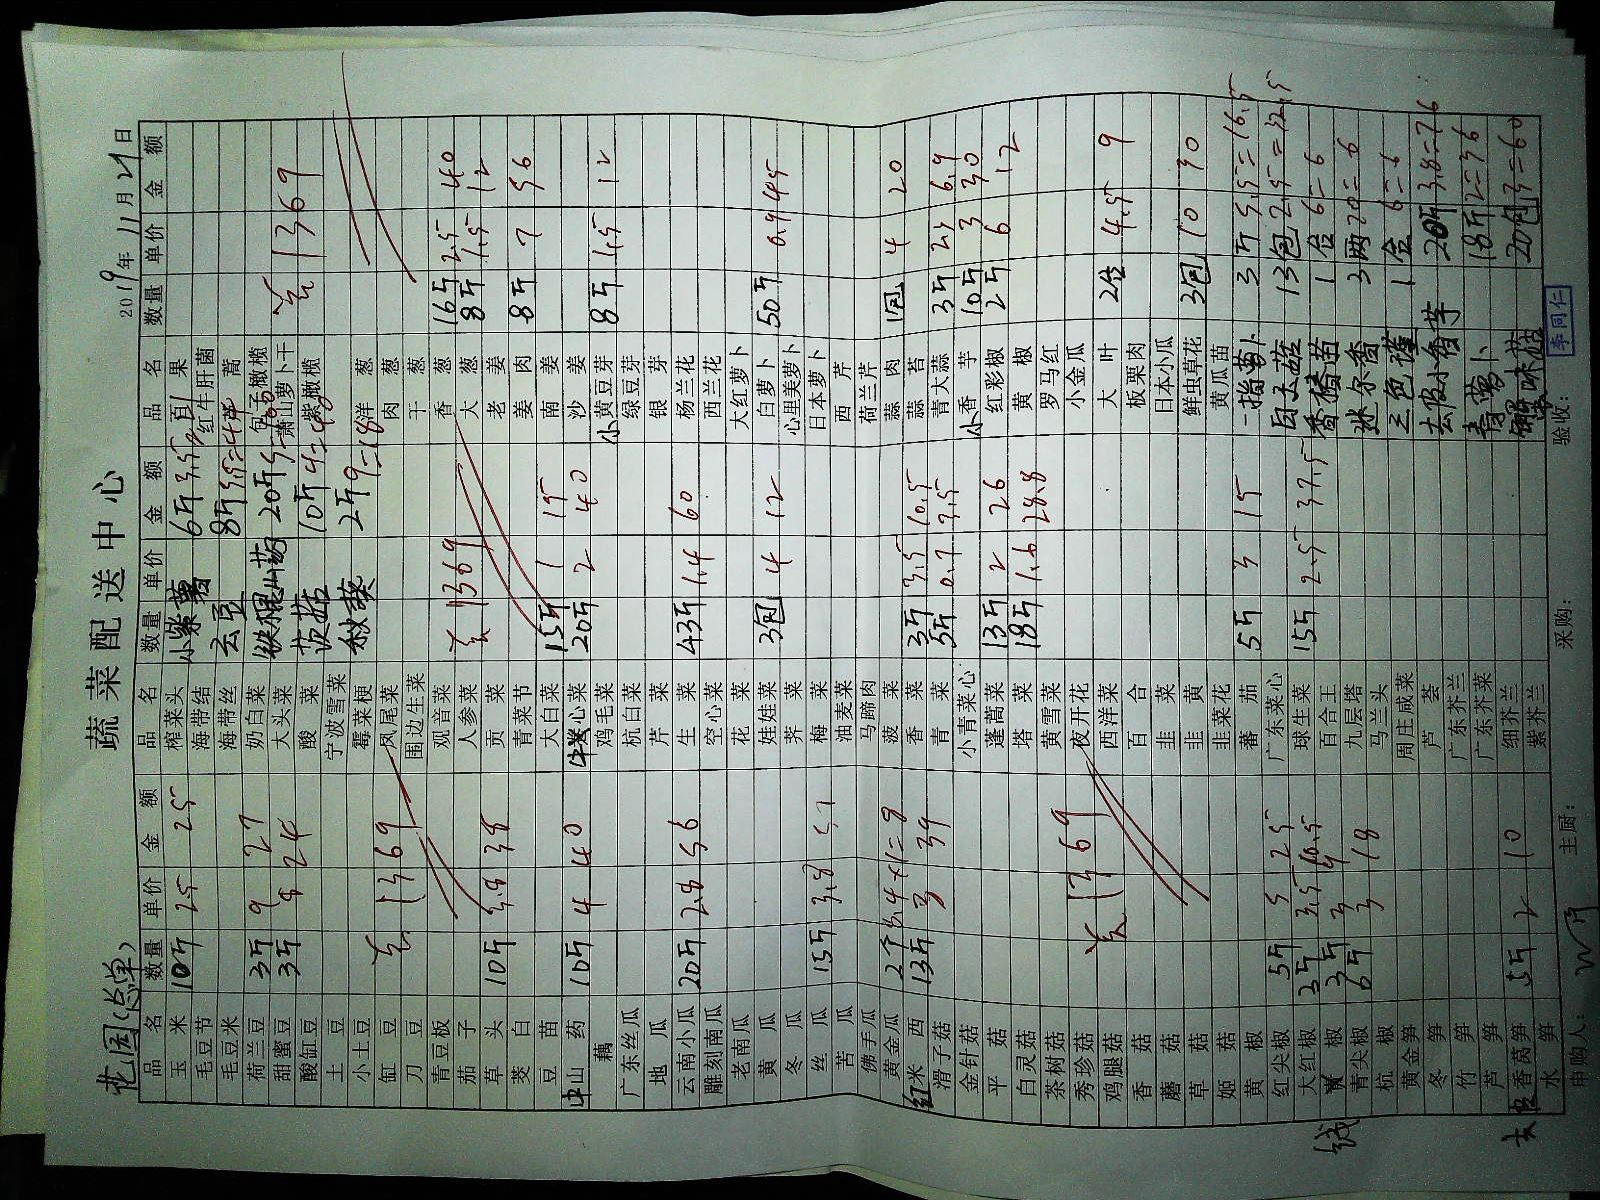 花园(总单)
蔬菜配送中心
2019年11月21日
品名 数量 单价 金额 品名 数量 单价 金额 品名 数量 单价 金额
玉米 10斤 2.5 25 榨菜头 小紫薯 6斤 3.5 百果
毛豆节 海带结 红牛肝菌
毛豆米 海带丝 云豆 8斤 5.5=44 蒿
荷兰豆 3斤 9 27 奶白菜 铁棍山药 20斤 包子橄榄
甜蜜豆 3斤 8 24 大头菜 萧山萝卜干 共1369
酸缸豆 酸菜 茨菇 10斤 4=40 紫橄榄
土豆 宁波雪菜
小土豆 霉菜梗 秋葵 2斤 9=18 洋葱
缸豆 共1369 凤尾菜 肉葱
刀豆 围边生菜 干葱
青豆板 观音菜 香葱 16斤 2.5 40
茄子 人参菜 共1369 大葱 8斤 1.5 12
草头 10斤 3.8 38 贡菜 老姜
茭白 青菜节 姜肉 8斤 7 56
豆苗 大白菜 15斤 1 15 南姜
山药 10斤 4 40 牛心菜 20斤 2 40 沙姜
藕 鸡毛菜 小黄豆芽 8斤 1.5 12
广东丝瓜 杭白菜 绿豆芽
地瓜 芹菜 银芽
云南小瓜 20斤 2.8 56 生菜 43斤 1.4 60 杨兰花
雕刻南瓜 空心菜 西兰花
老南瓜 花菜 大红萝卜
黄瓜 娃娃菜 3包 4 12 白萝卜 50斤 0.9 45
冬瓜 荠菜 心里美萝卜
丝瓜 15斤 3.8 57 梅菜 日本萝卜
苦瓜 油麦菜 西芹
佛手瓜 马蹄肉 荷兰芹
黄金瓜 2个 菠菜 蒜肉 1包 4 20
红米西 13斤 3 39 香菜 3斤 3.5 10.5 蒜苔
滑子菇 青菜 5斤 0.7 3.5 青大蒜 3斤 2.3 6.9
金针菇 小青菜心 小香芋 10斤 3 30
平菇 蓬蒿菜 13斤 2 26 红彩椒 2斤 6 12
白灵菇 塔菜 18斤 1.6 28.8 黄椒
茶树菇 黄雪菜 罗马红
秀珍菇 共1369 夜开花 小金瓜
鸡腿菇 西洋菜 大叶 2台 4.5 9
香菇 百合 板栗肉
蘑菇 韭菜 日本小瓜
草菇 韭黄 鲜虫草花 3包 10 30
姬菇 韭菜花 黄瓜苗
黄椒 蕃茄 5斤 3 15 一指萝卜 3斤 5.5=16.5
红尖椒 5斤 5 25 广东菜心 白玉菇 13包 2.5=32.5
大红椒 3斤 3.5 10.5 球生菜 15斤 2.5 37.5 香椿苗 1台 6=6
青椒 3斤 3 9 百合王 迷尔香 3两 20=6
青尖椒 6斤 3 18 九层塔 三色堇 1盒 6=6
杭椒 马兰头 去皮小香芋 20斤 3.8=76
黄金笋 周庄咸菜 青萝卜 18斤 2=36
冬笋 芦荟 蟹味菇 20包 3=60
竹笋 广东芥兰
芦笋 广东芥菜
去皮香莴笋 5斤 2 10 细芥兰
水笋 紫芥兰
申购人: 主厨: 采购: 验收: 李同仁